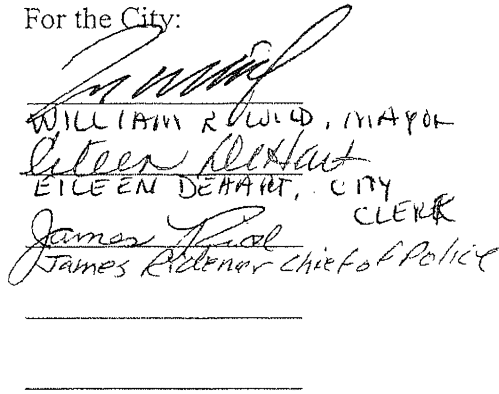 For the City:
WILLIAM R WILD, MAYOR
Eileen DeHart
EILEEN DEHART, CITY
CLERK
James
James Ridener Chief of Police